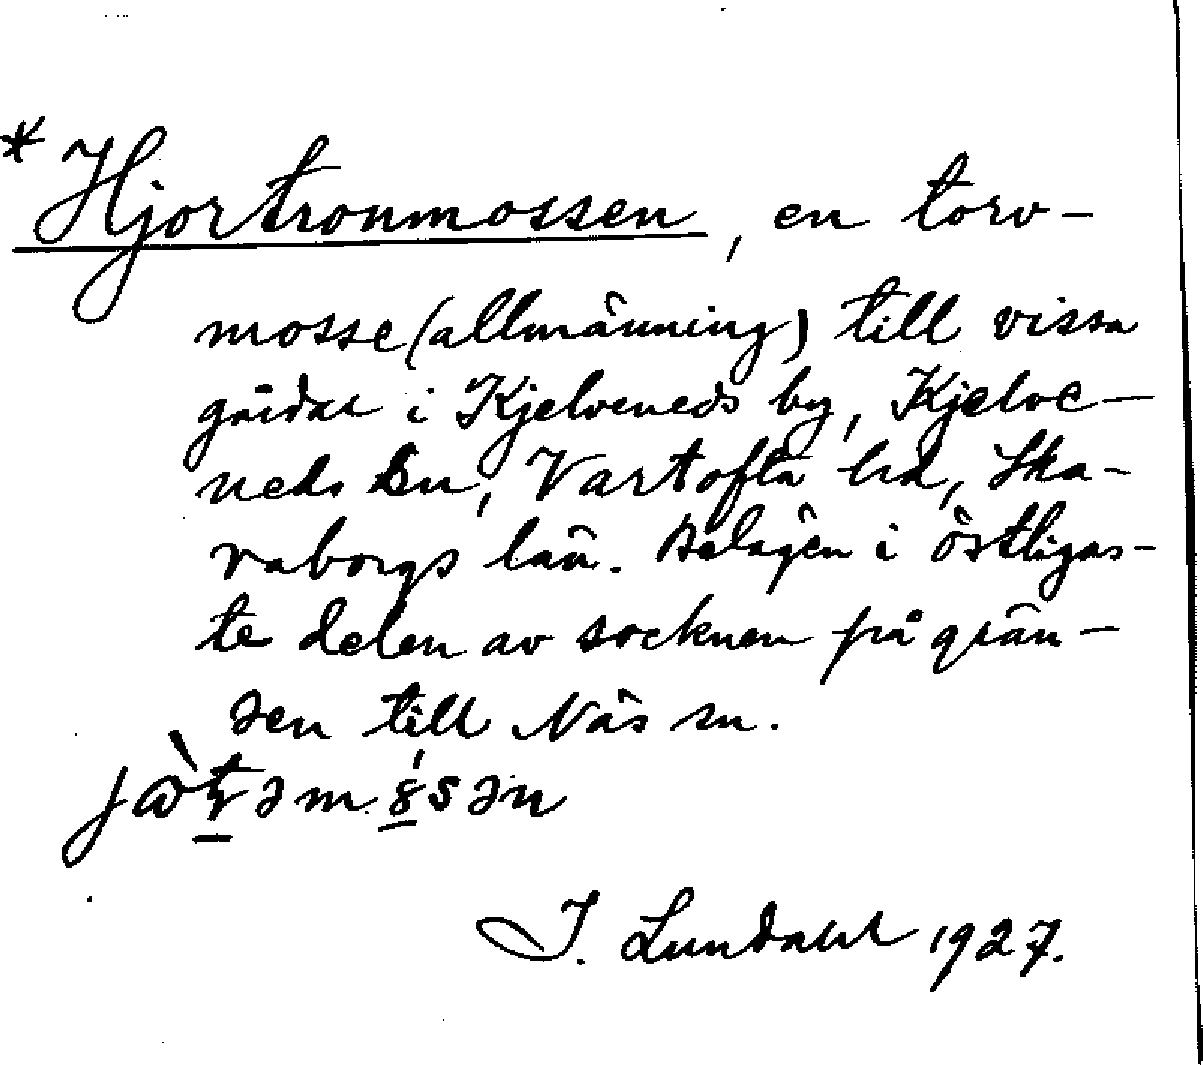 * Hjortronmossen, en torv-
mosse (allmänning) till vissa
gårdar i Kjelveneds by, Kjelve-
neds sn, Vartofta hd, Ska-
raborgs län. Belägen i östligas-
te delen av socknen på grän-
sen till Näs sn.
I. Lundahl 1927.